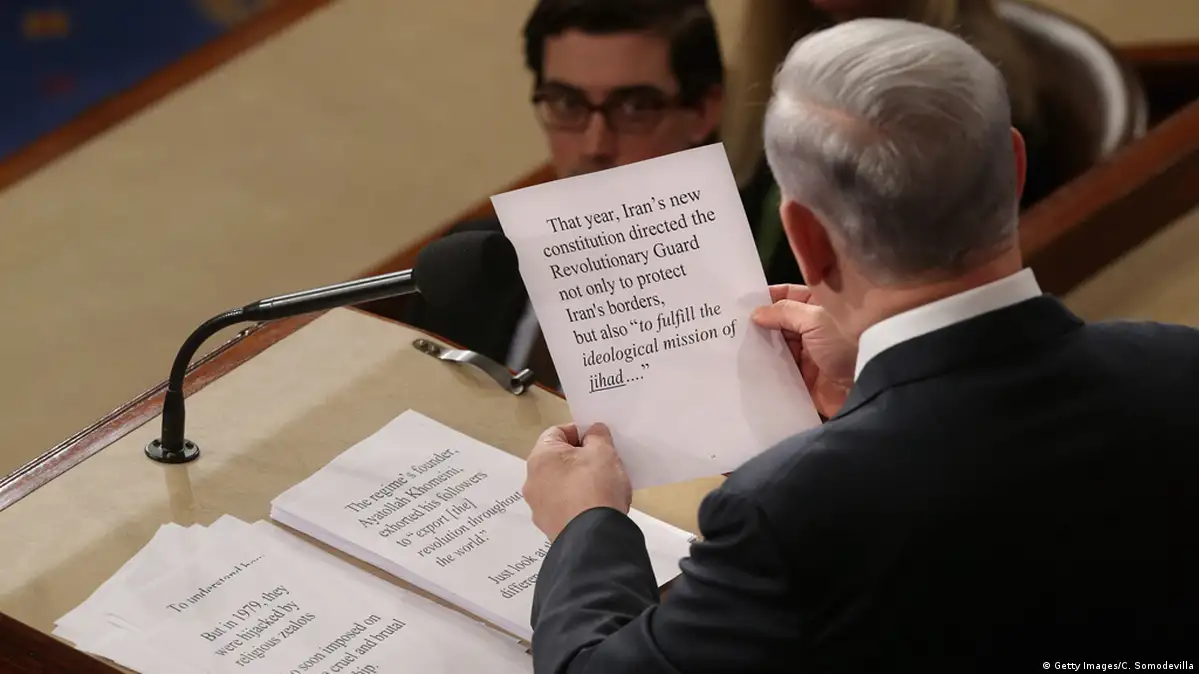 That year, Iran's new
constitution directed the
Revolutionary Guard
not only to protect
Iran's borders,
but also "to fulfill the
ideological mission of
jihad...."
The regime's founder,
Ayatollah Khomeini,
exhorted his followers
to "export [the]
revolution throughout
the world."
Just look at
To understand
But in 1979, they
were hijacked by
religious zealots
soon imposed on
cruel and brutal
© Getty Images/C. Somodevilla